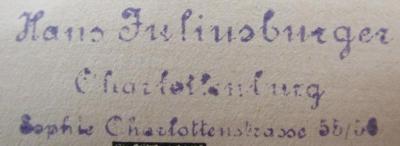 Hans Juliusburger
Charlottenburg
Sophie Charlottenstrasse 55/56